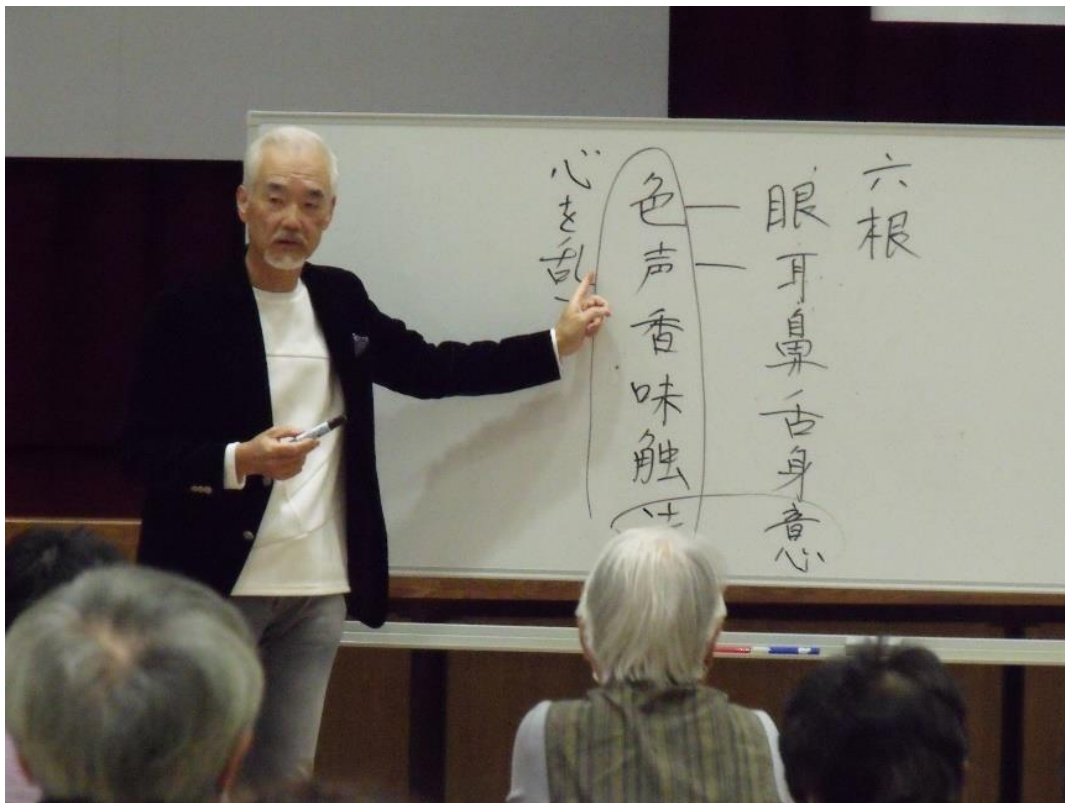 六根
眼耳鼻舌身意
色声香味触
心を乱